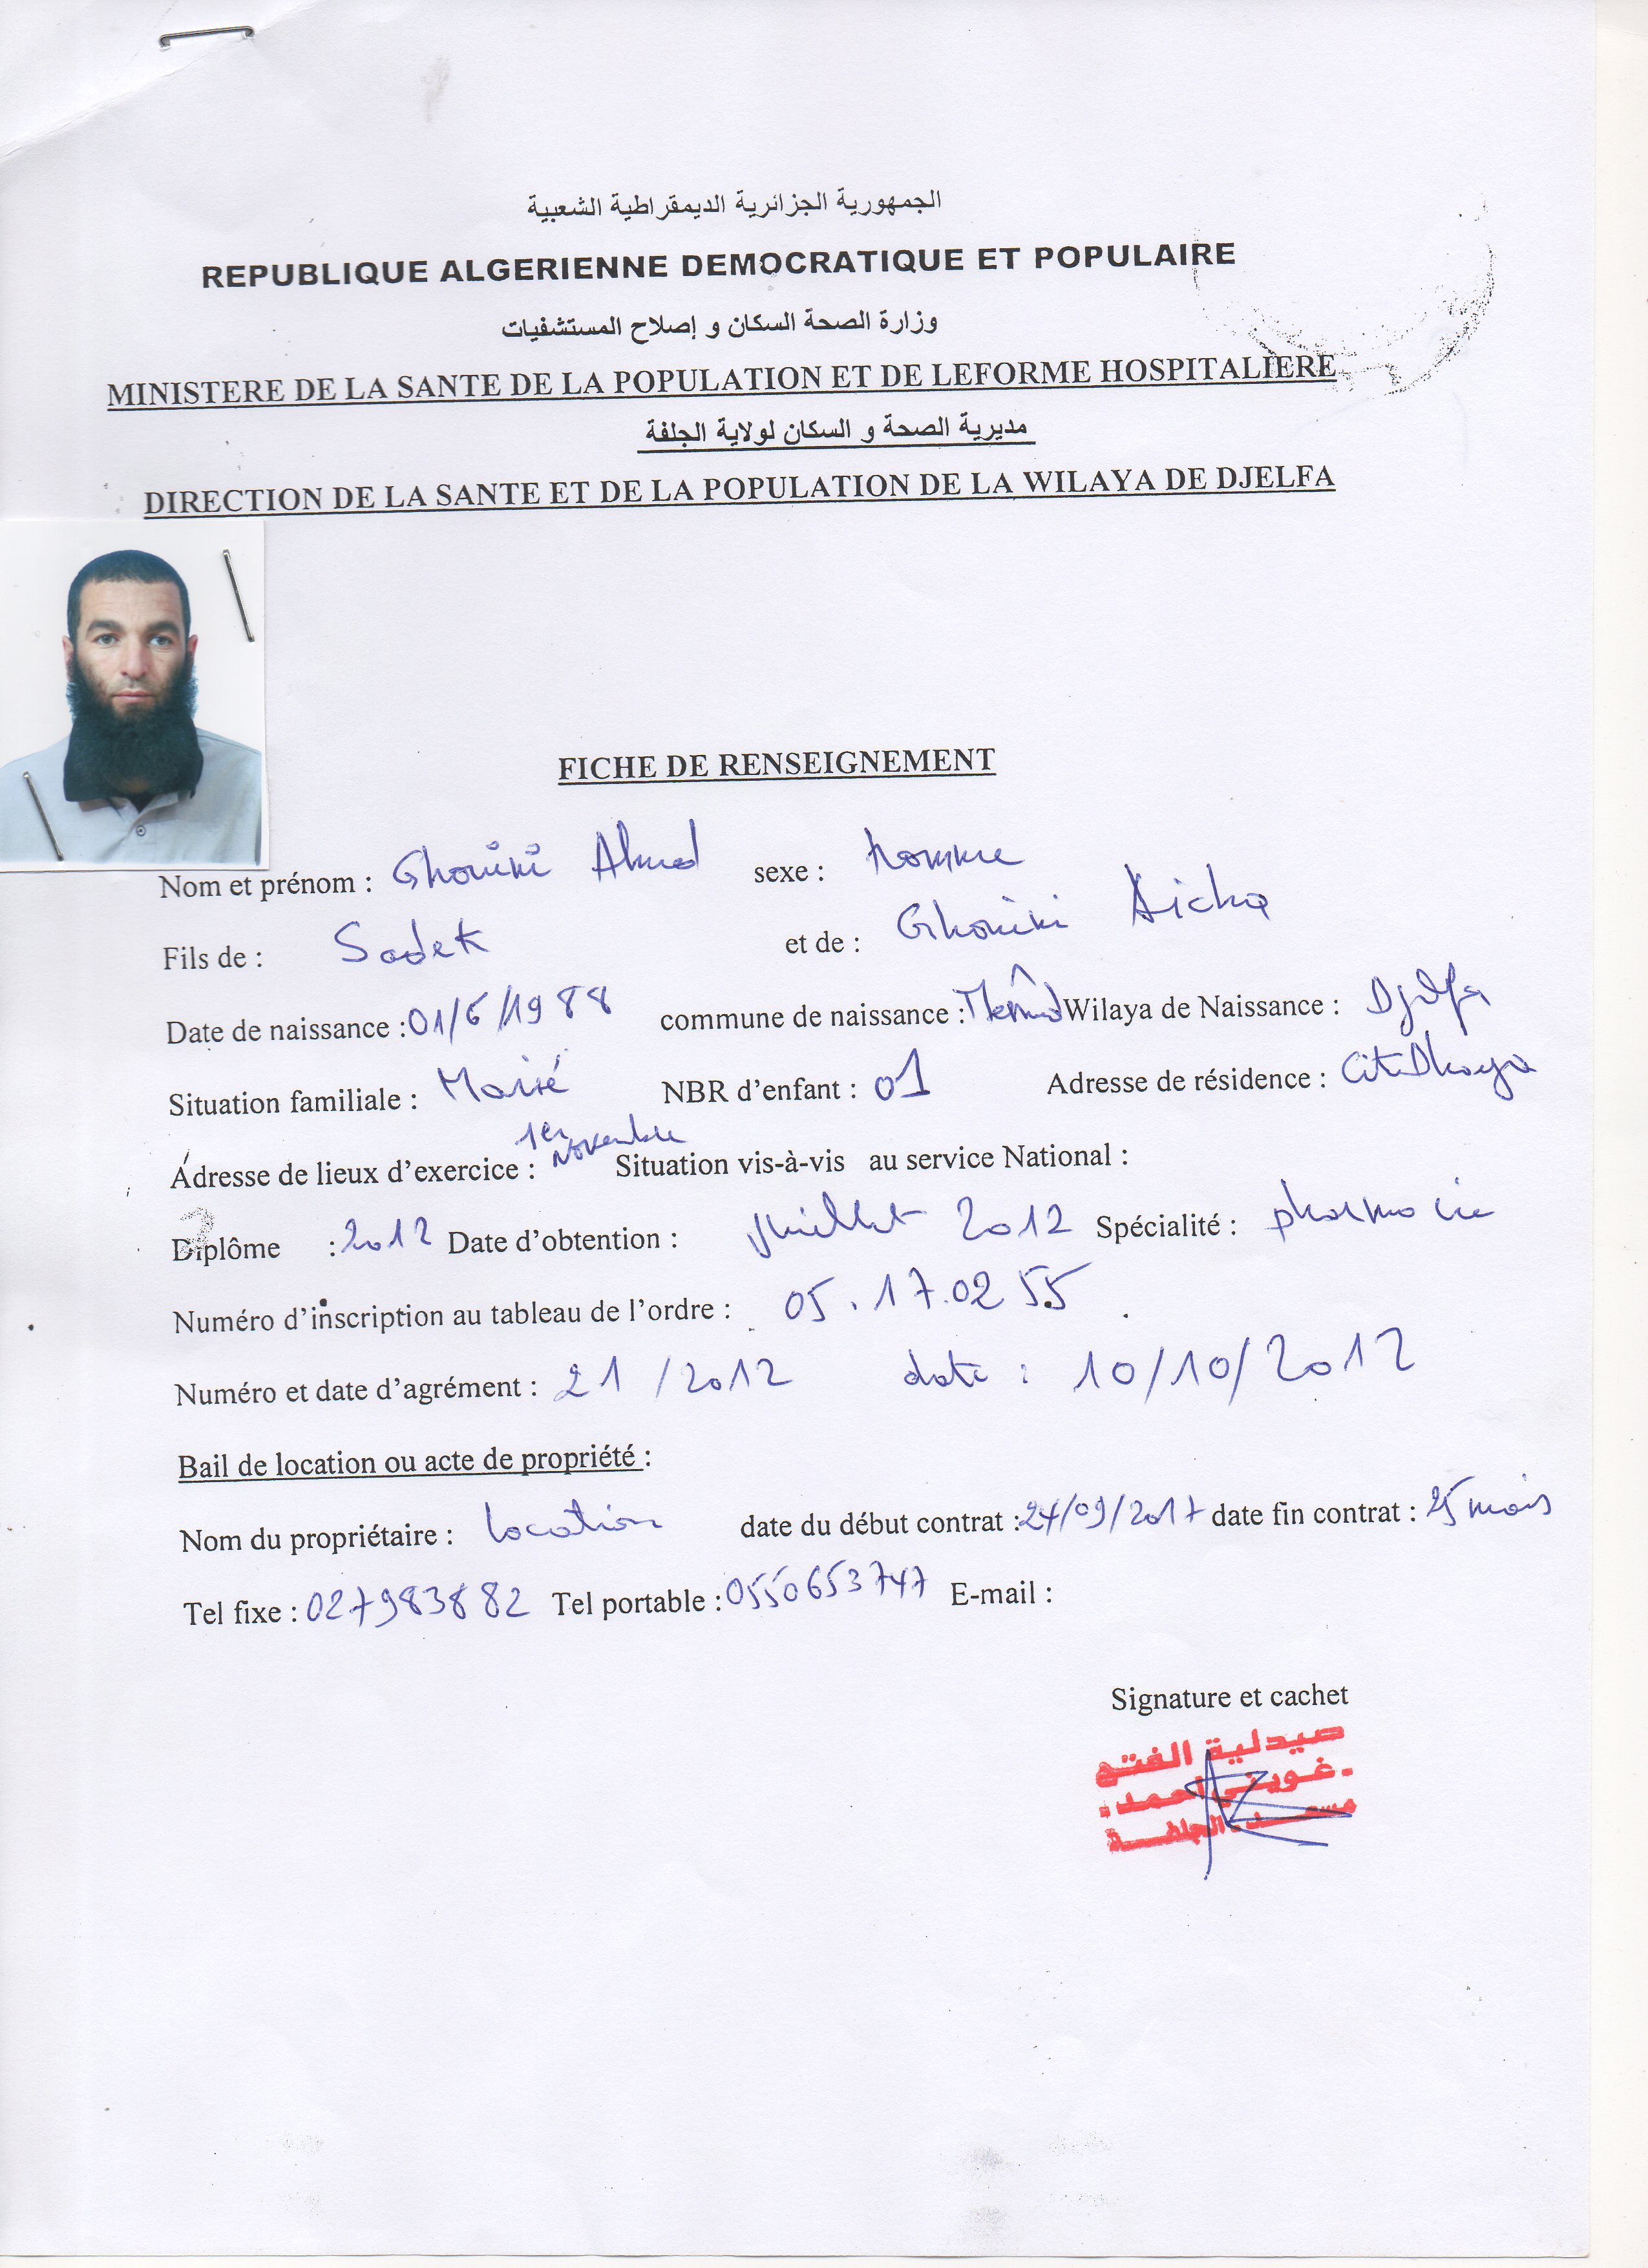 الجمهورية الجزائرية الديمقراطية الشعبية
REPUBLIQUE ALGERIENNE DEMOCRATIQUE ET POPULAIRE
وزارة الصحة السكان و إصلاح المستشفيات
MINISTERE DE LA SANTE DE LA POPULATION ET DE LEFORME HOSPITALIERE
مديرية الصحة و السكان لولاية الجلفة
DIRECTION DE LA SANTE ET DE LA POPULATION DE LA WILAYA DE DJELFA
FICHE DE RENSEIGNEMENT
Nom et prénom : Ghouini Ahmed sexe : homme
Fils de : Sadek et de : Ghouini Aicha
Date de naissance : 01/6/1988 commune de naissance : Wilaya de Naissance : Djelfa
Situation familiale : Marié NBR d'enfant : 01 Adresse de résidence : Cite Dhaya
Adresse de lieux d'exercice : 1er Novembre Situation vis-à-vis au service National :
Diplôme : 2012 Date d'obtention : juillet 2012 Spécialité : pharmacie
Numéro d'inscription au tableau de l'ordre : 05.17.0255
Numéro et date d'agrément : 21 /2012 date : 10/10/2012
Bail de location ou acte de propriété :
Nom du propriétaire : location date du début contrat : 24/09/2017 date fin contrat : 25 mois
Tel fixe : 027983882 Tel portable : 0550653747 E-mail :
Signature et cachet
صيدلية الفتح
- غويني احمد -
مسعد - الجلفة